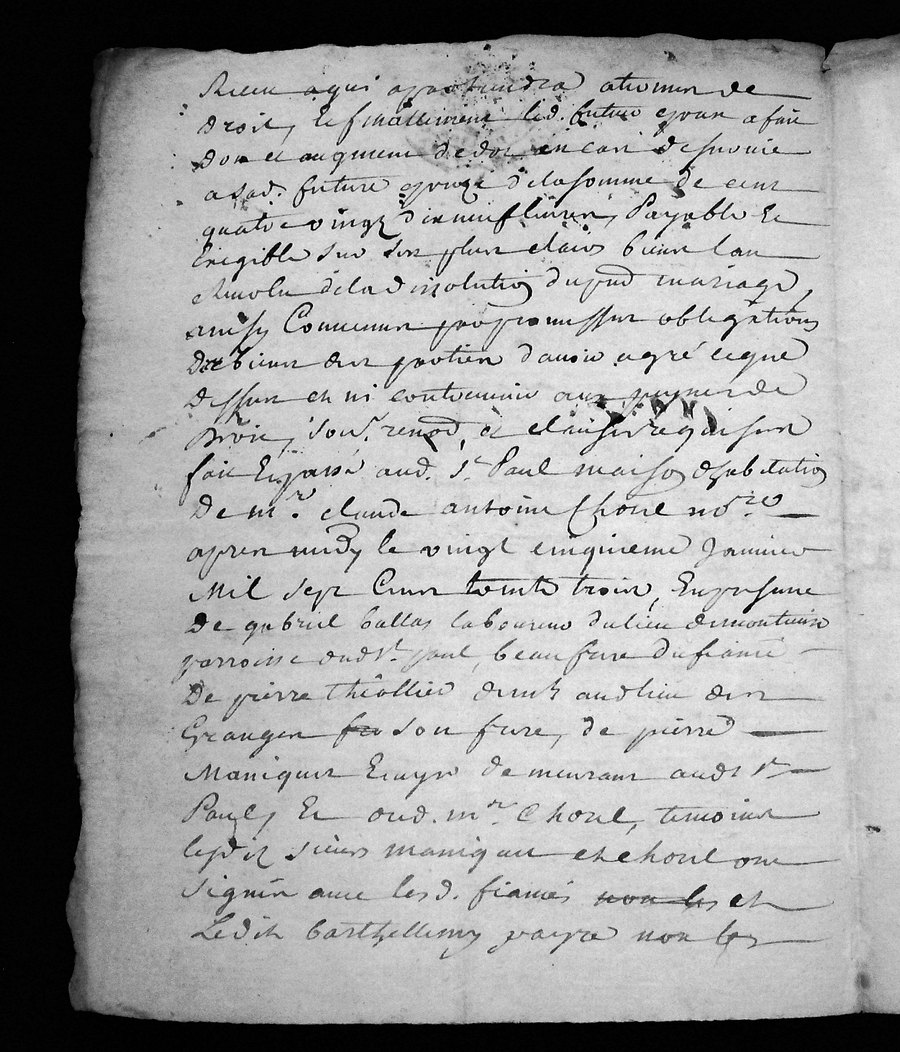 Rieu a qui apartiendra a tiermes de
droit, Et finallement led. futur epoux a fait
don et augment de dot en cas de survie
a sad. future epouze de la somme de cent
quatre vingt dix neuf livres, Payable Et
Exigible sur ses plus clairs biens l'an
Revolu de la dissolution du pnt mariage,
ainsy Convenu par promesses obligations
de biens des parties d'avoir agré ce que
dessus et ni contrevenir aux peynes de
Droit, sous. renod. et clauses requises
fait Et passé aud. St. Paul maison d'habitation
De mr. claude antoine Chorel nore
apres midy le vingt cinquieme Janvier
Mil sept Cens trente trois, En presence
De gabriel ballas laboureur du lieu de montensin
parroisse dud st. paul, beau frere du fiancé
De pierre theollier demt. aud lieu des
Granges fre son frere, de pierre
Maniquet Ecuyer demeurant aud st.
Paul, Et dud. mr. Chorel, temoins
lesdits sieurs maniquet et chorel ont
signés avec lesd. fiancés non les et
Ledit barthellemy payre non les